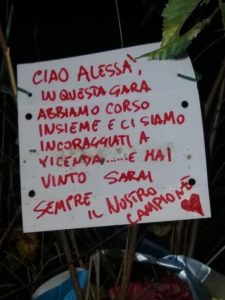 CIAO ALESSA',
IN QUESTA GARA
ABBIAMO CORSO
INSIEME E CI SIAMO
INCORAGGIATI A
VICENDA...... E HAI
VINTO SARAI
SEMPRE IL NOSTRO
CAMPIONE